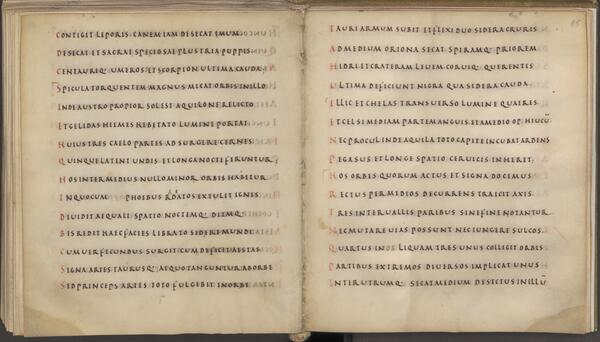 CONTIGIT LEPORIS CANEM IAM DESECAT IMUM
DESECAT ET SACRAE SPECIOSA E PLUSTRIA PUPPIS
CENTAURIQ· UMEROS ET SCORPION ULTIMA CAUDA
SPICULA TORQUENTEM MAGNUS MICAT ORBIS IN ILLO
INDE AUSTRO PROPIOR SOL EST AQUILONE RELICTO
ET GELIDAS HIEMES HEBETATO LUMINE PORTAT
HUIUS TRES CAELO PARTES ADSURGERE CERNES
QUINQUE LATENT UNDIS ET LONGA NOCTE FERUNTUR
HOS INTER MEDIUS NULLO MINOR ORBIS HABETUR
IN QUO CUM PHOIBUS RADIATOS EXTULIT IGNES
DIUIDIT AEQUALI SPATIO NOCTEMQ· DIEMQ·
BIS REDIT HAEC FACIES LIBRATO SIDERE MUNDI
CUM UER FECUNDUS SURGIT CUM DEFICIT AESTAS
SIGNA ARIES TAURUSQ· AEQUO TANGUNTUR AB ORBE
SED PRINCEPS ARIES TOTO FULGEBIT IN ORBE
65
TAURI ARMUM SUBIT ET FLEXI DUO SIDERA CRURIS
AD MEDIUM ORIONA SECAT SPIRAMQ· PRIOREM
HIDRI ET CRATERAM LEUEM CORUIQ· QUERENTIS
ULTIMA DEFICIUNT NIGRA QUA SIDERA CAUDA
ILLIC ET CHELAS TRANSUERSO LUMINE QUAERES
ET CELSI MEDIAM PARTEM ANGUIS ET AMEDIO OPHIUCŪ
NEC PROCUL INDE AQUILA TOTO CAPITE INCUBAT ARDENS
PEGASUS ET LONGE SPATIO CERUICIS INHERIT
HOS ORBES QUORUM ACTUS ET SIGNA DOCEMUS
RECTUS PER MEDIOS DECURRENS TRAICIT AXIS
TRES INTERUALLIS PARIBUS SINE FINE NOTANTUR
NEC MUTARE UIAS POSSUNT NEC IUNGERE SULCOS
QUARTUS IN OBLIQUAM TRES UNUS COLLIGIT ORBIS
PARTIBUS EXTREMOS DIUERSOS IMPLICAT UNUS
INTER UTRUMQ· SECAT MEDIUM DESECTUS IN ILLŪ